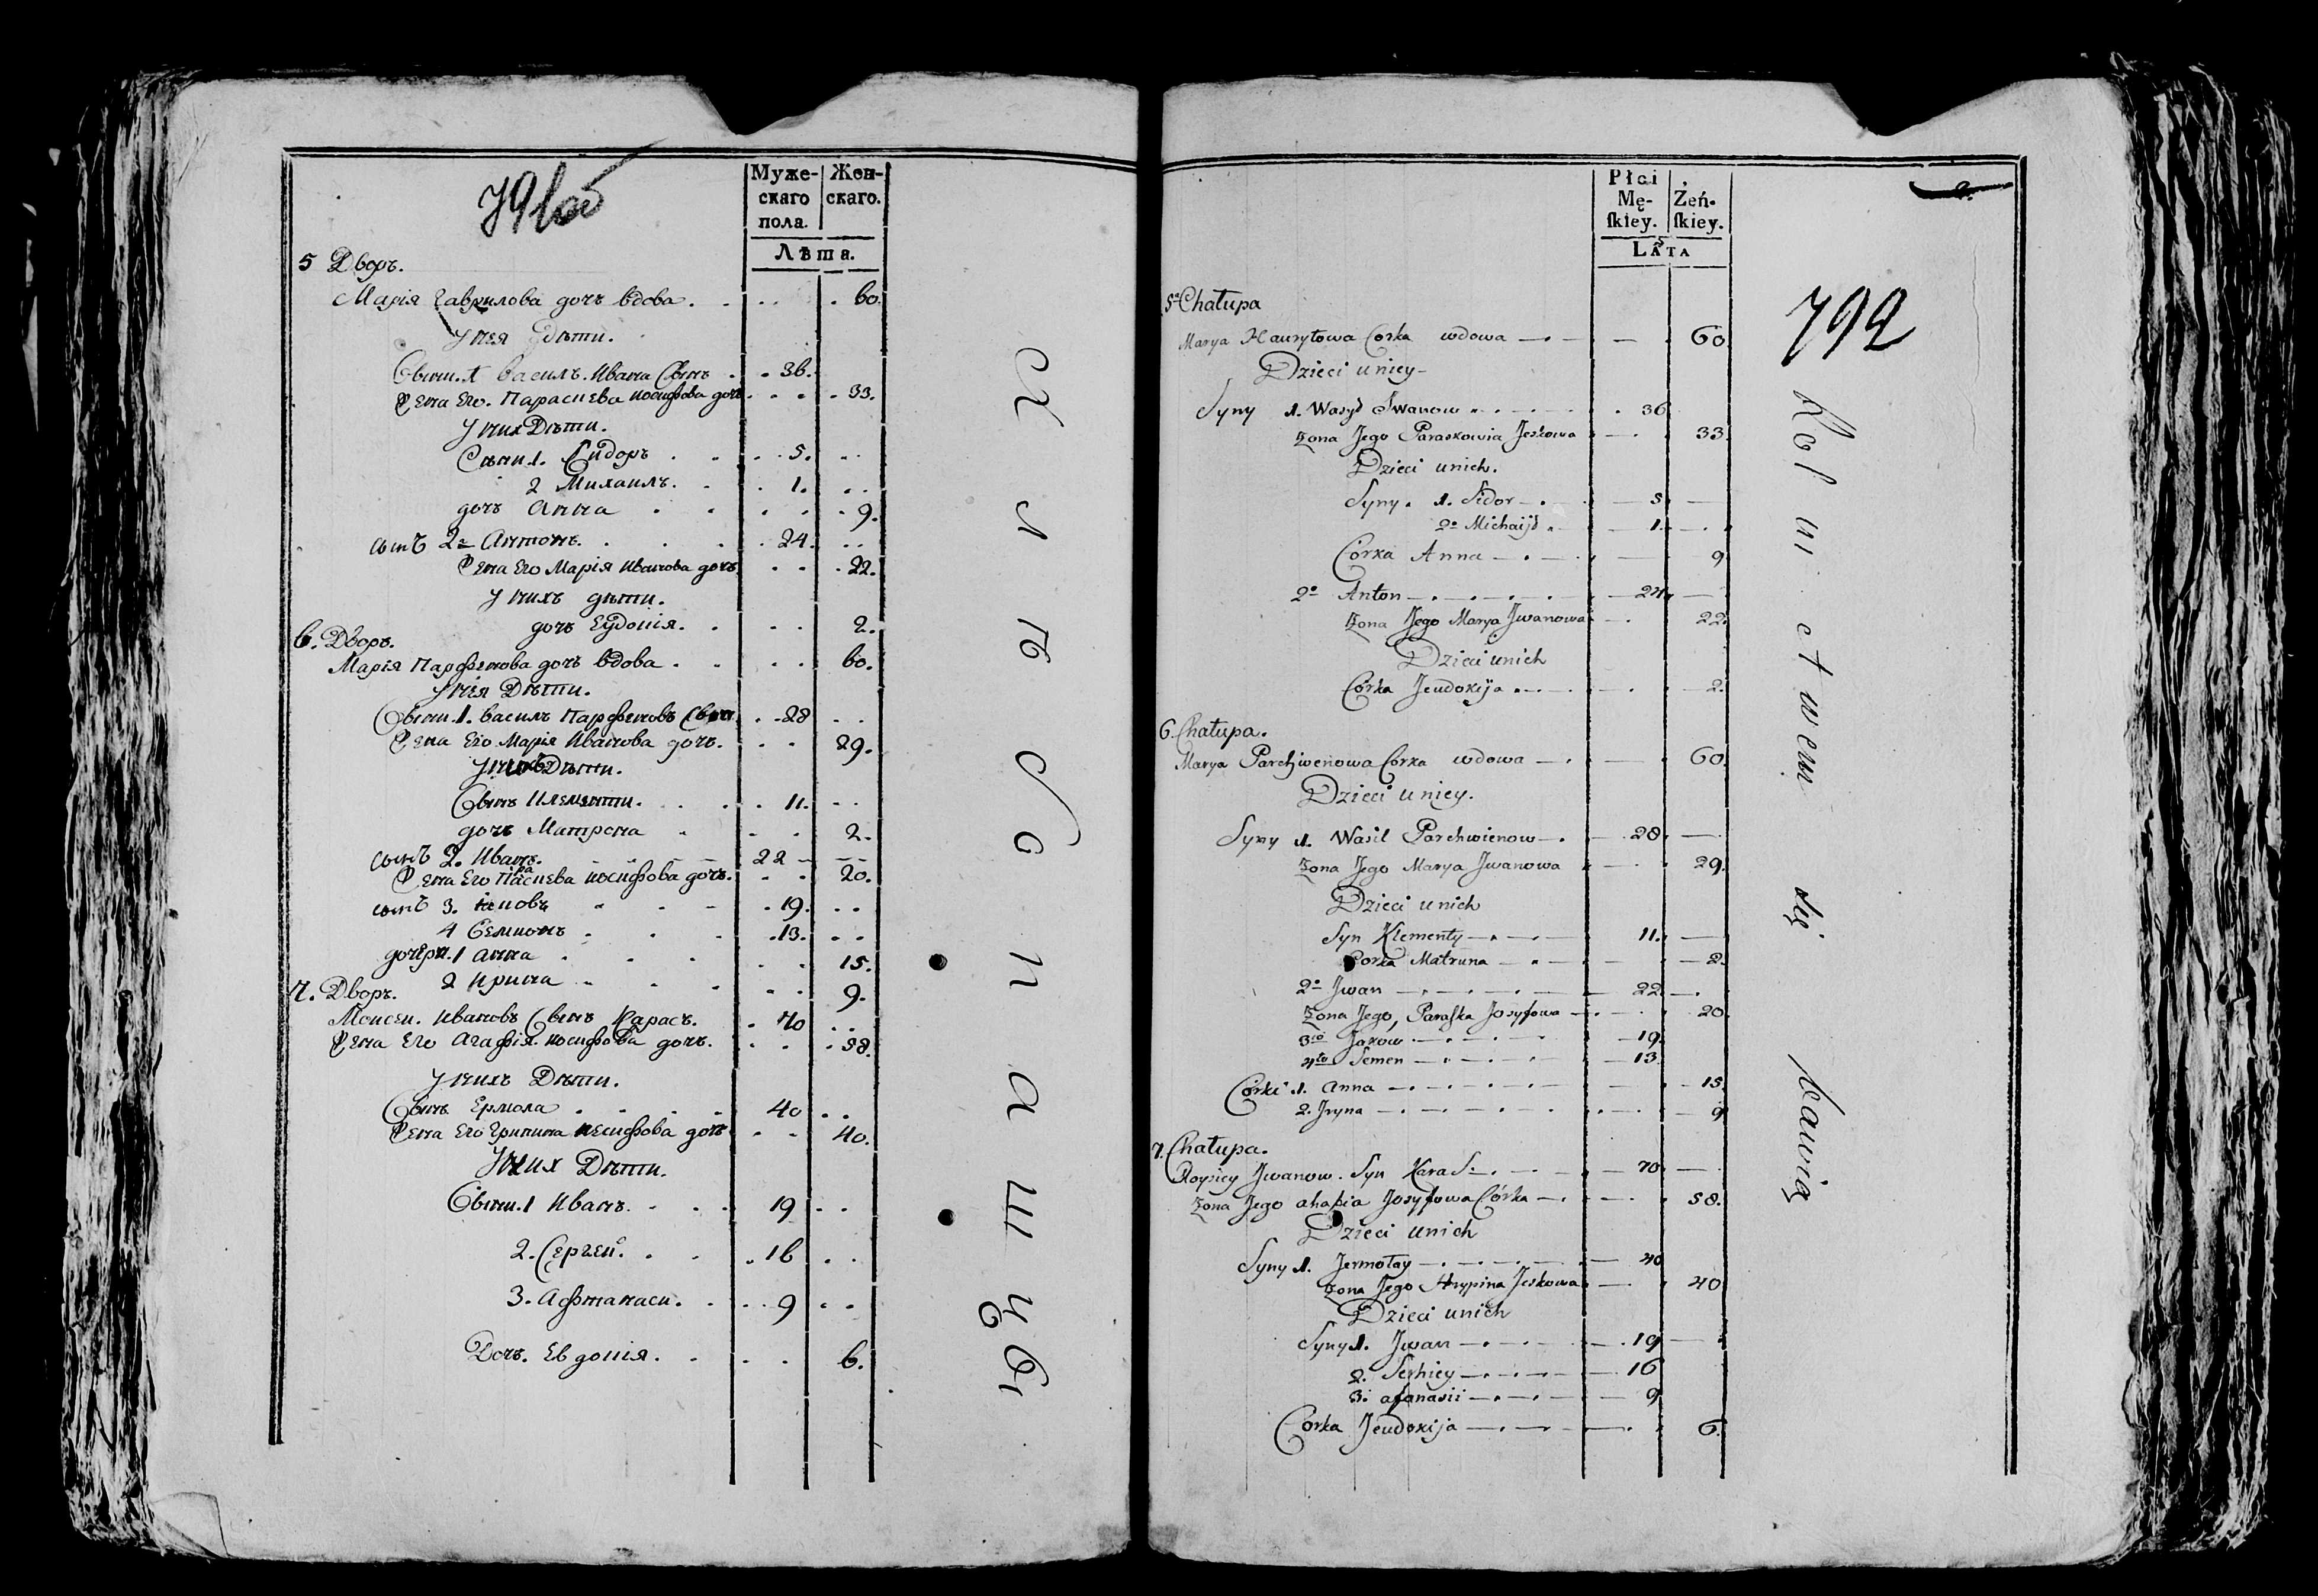 791об
Муже-
скаго
пола.
Жен-
скаго.
Лѣта.
5 Дворъ.
Марія Гаврилова дочь вдова . 60.
У нея дѣти.
Сыны. 1 Василь. Ивана Сынъ . 36.
Жена Его. Параскева Иосифова дочь 33.
У них Дѣти.
Сыны 1. Сидоръ . . 5.
2 Михаилъ. . 1.
дочь Анна . . 9.
сынъ 2й Антонъ. . 24.
Жена Его Марія Иванова дочь . 22.
У нихъ дѣти.
дочь Еудокія. . 2.
6. Дворъ.
Марія Парфенова дочь вдова . 60.
У нея Дѣти.
Сыны. 1. Василь Парфеновъ Сынъ . 28
Жена Его Марія Иванова дочь. 29.
У нихъ Дѣти.
Сынъ Клементи. . 11.
дочь Матрона . 2.
сынъ 2. Иванъ. 22
Жена Его Параскева Иосифова дочь. 20.
сынъ 3. Іаковъ . 19.
4 Семионъ . 13.
дочери. 1 Анна . 15.
2 Ирина . 9.
7. Дворъ.
Моисеи. Ивановъ Сынъ Карась. 70
Жена Его Агафія. Иосифова дочь. 58.
У нихъ Дѣти.
Сынъ Ермола . 40
Жена Его Грипина Иосифова дочь 40.
У них Дѣти.
Сыны. 1 Иванъ. . 19
2. Сергеи. . 16
3. Афтанаси. . 9
Дочь. Евдокія. . 6.
Хлѣбопашцы
Płci
Mę-
ſkiey.
Żeń-
ſkiey.
Lata
792
5a Chałupa
Marya Hauryłowa Corka wdowa 60
Dzieci uniey
Syny 1. Wasyl Iwanow 36
Żona Jego Paraskowia Jeskowa 33
Dzieci unich.
Syny. 1. Sidor 5
2o Michaijł 1.
Córka Anna 9
2o Anton 24
Żona Jego Marya Jwanowa 22
Dzieci unich
Córka Jeudokija 2.
6. Chałupa.
Marya Parchwenowa Corka wdowa 60.
Dzieci uniey.
Syny 1. Wasil Parchwienow 28
Żona Jego Marya Jwanowa 29.
Dzieci unich
Syn Klementy 11.
Corka Matruna 2.
2o Jwan 22
Żona Jego, Paraſka Josyfowa 20
3cio Jakow 19.
4to Semen 13.
Córki 1. Anna 15
2. Jryna 9
7. Chałupa.
Jwanow. Syn Karaś 70
Żona Jego ahapia Josyfowa Córka 58.
Dzieci unich
Syny 1. Jermołay 40
Żona Jego Hrypina Jeskowa 40
Dzieci unich
Syny 1. Jwan 19
2. Serhiey 16
3. afanasii 9
Corka Jeudokija 6.
Rolnictwem się bawią